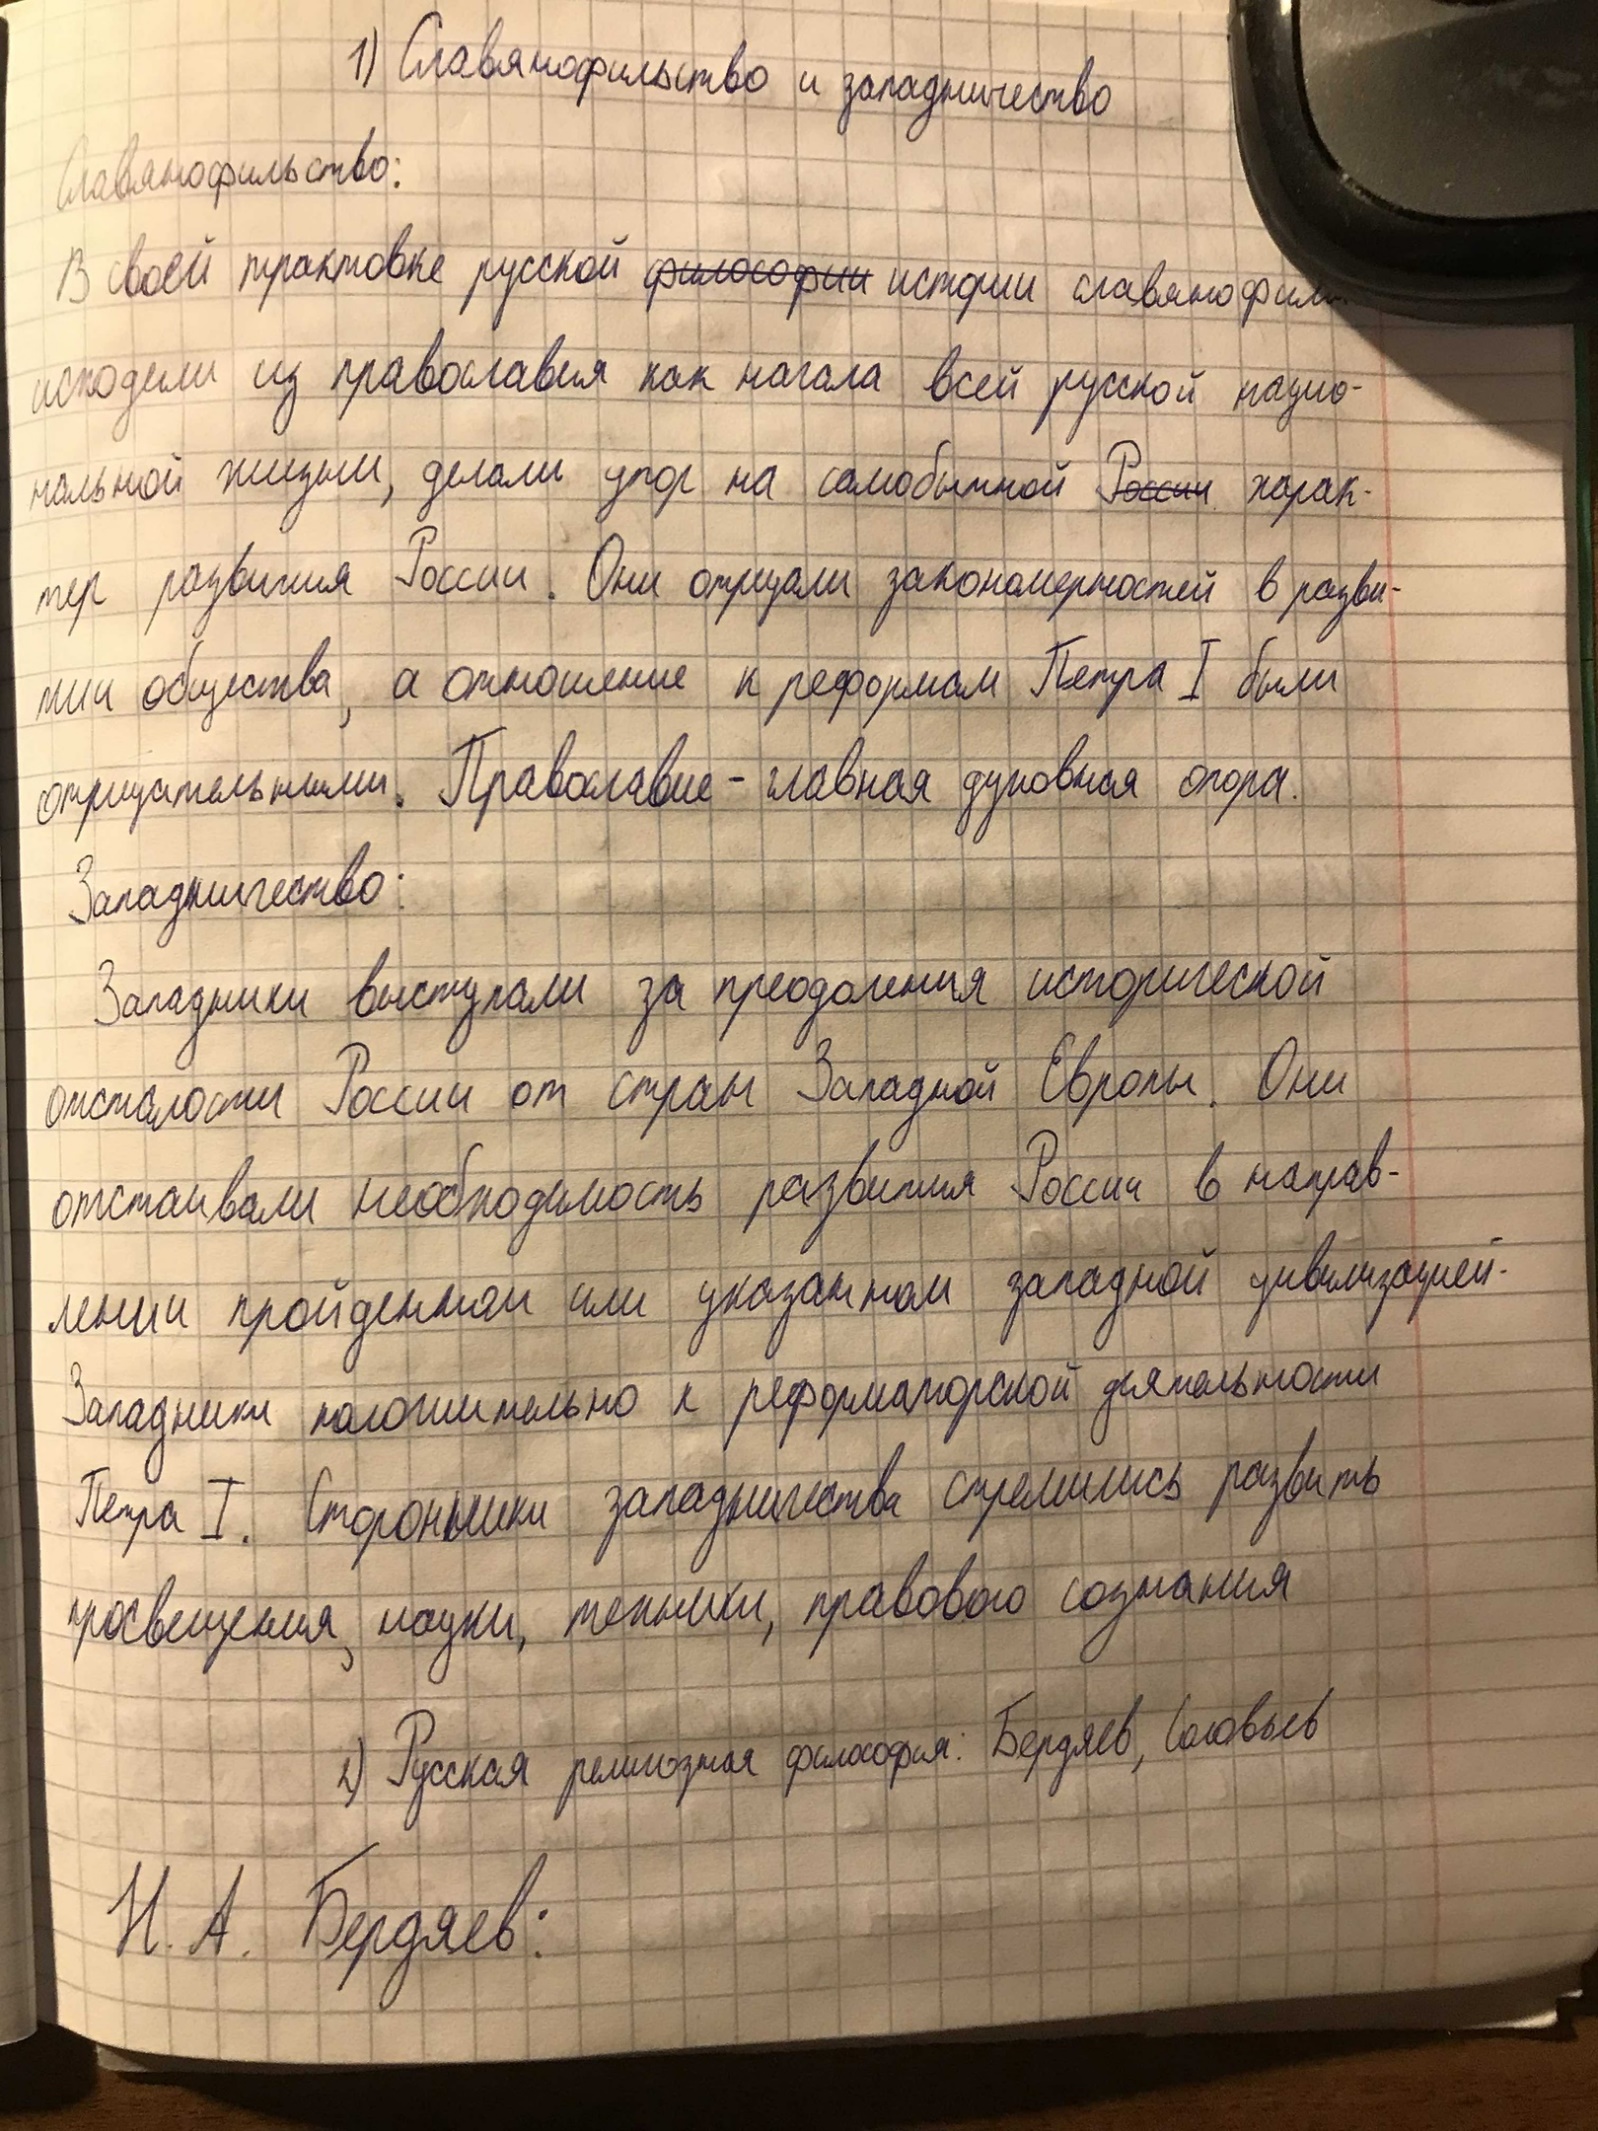 1) Славянофильство и западничество
Славянофильство:
В своей трактовке русской философии истории славянофилы
исходили из православия как начала всей русской нацио-
нальной жизни, делали упор на самобытной России харак-
тер развития России. Они отрицали закономерностей в разви-
тии общества, а отношение к реформам Петра I были
отрицательными. Православие - главная духовная опора.
Западничество:
Западники выступали за преодоления исторической
отсталости России от стран Западной Европы. Они
отстаивали необходимость развития России в направ-
лении пройденном или указанном западной цивилизацией.
Западники положительно к реформаторской деятельности
Петра I. Сторонники западничества стремились развить
просвещения, науки, техники, правового сознания
2) Русская религиозная философия: Бердяев, Соловьев
Н. А. Бердяев: